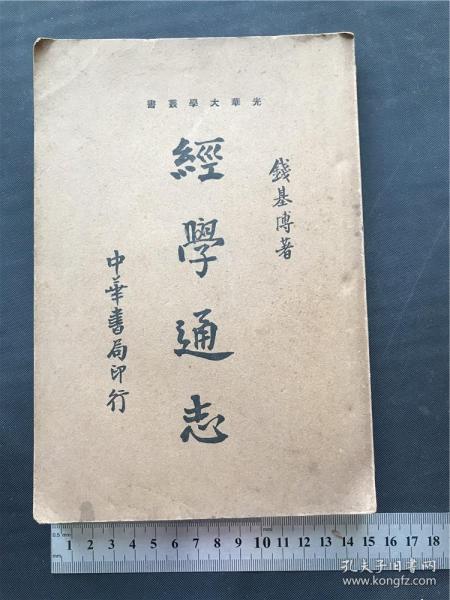 光華大學叢書
錢基博著
經學通志
中華書局印行
0.5mm 1 2 3 4 5 6 7 8 9 10 11 12 13 14 15 16 17 18
mm
孔夫子旧书网
www.kongfz.com